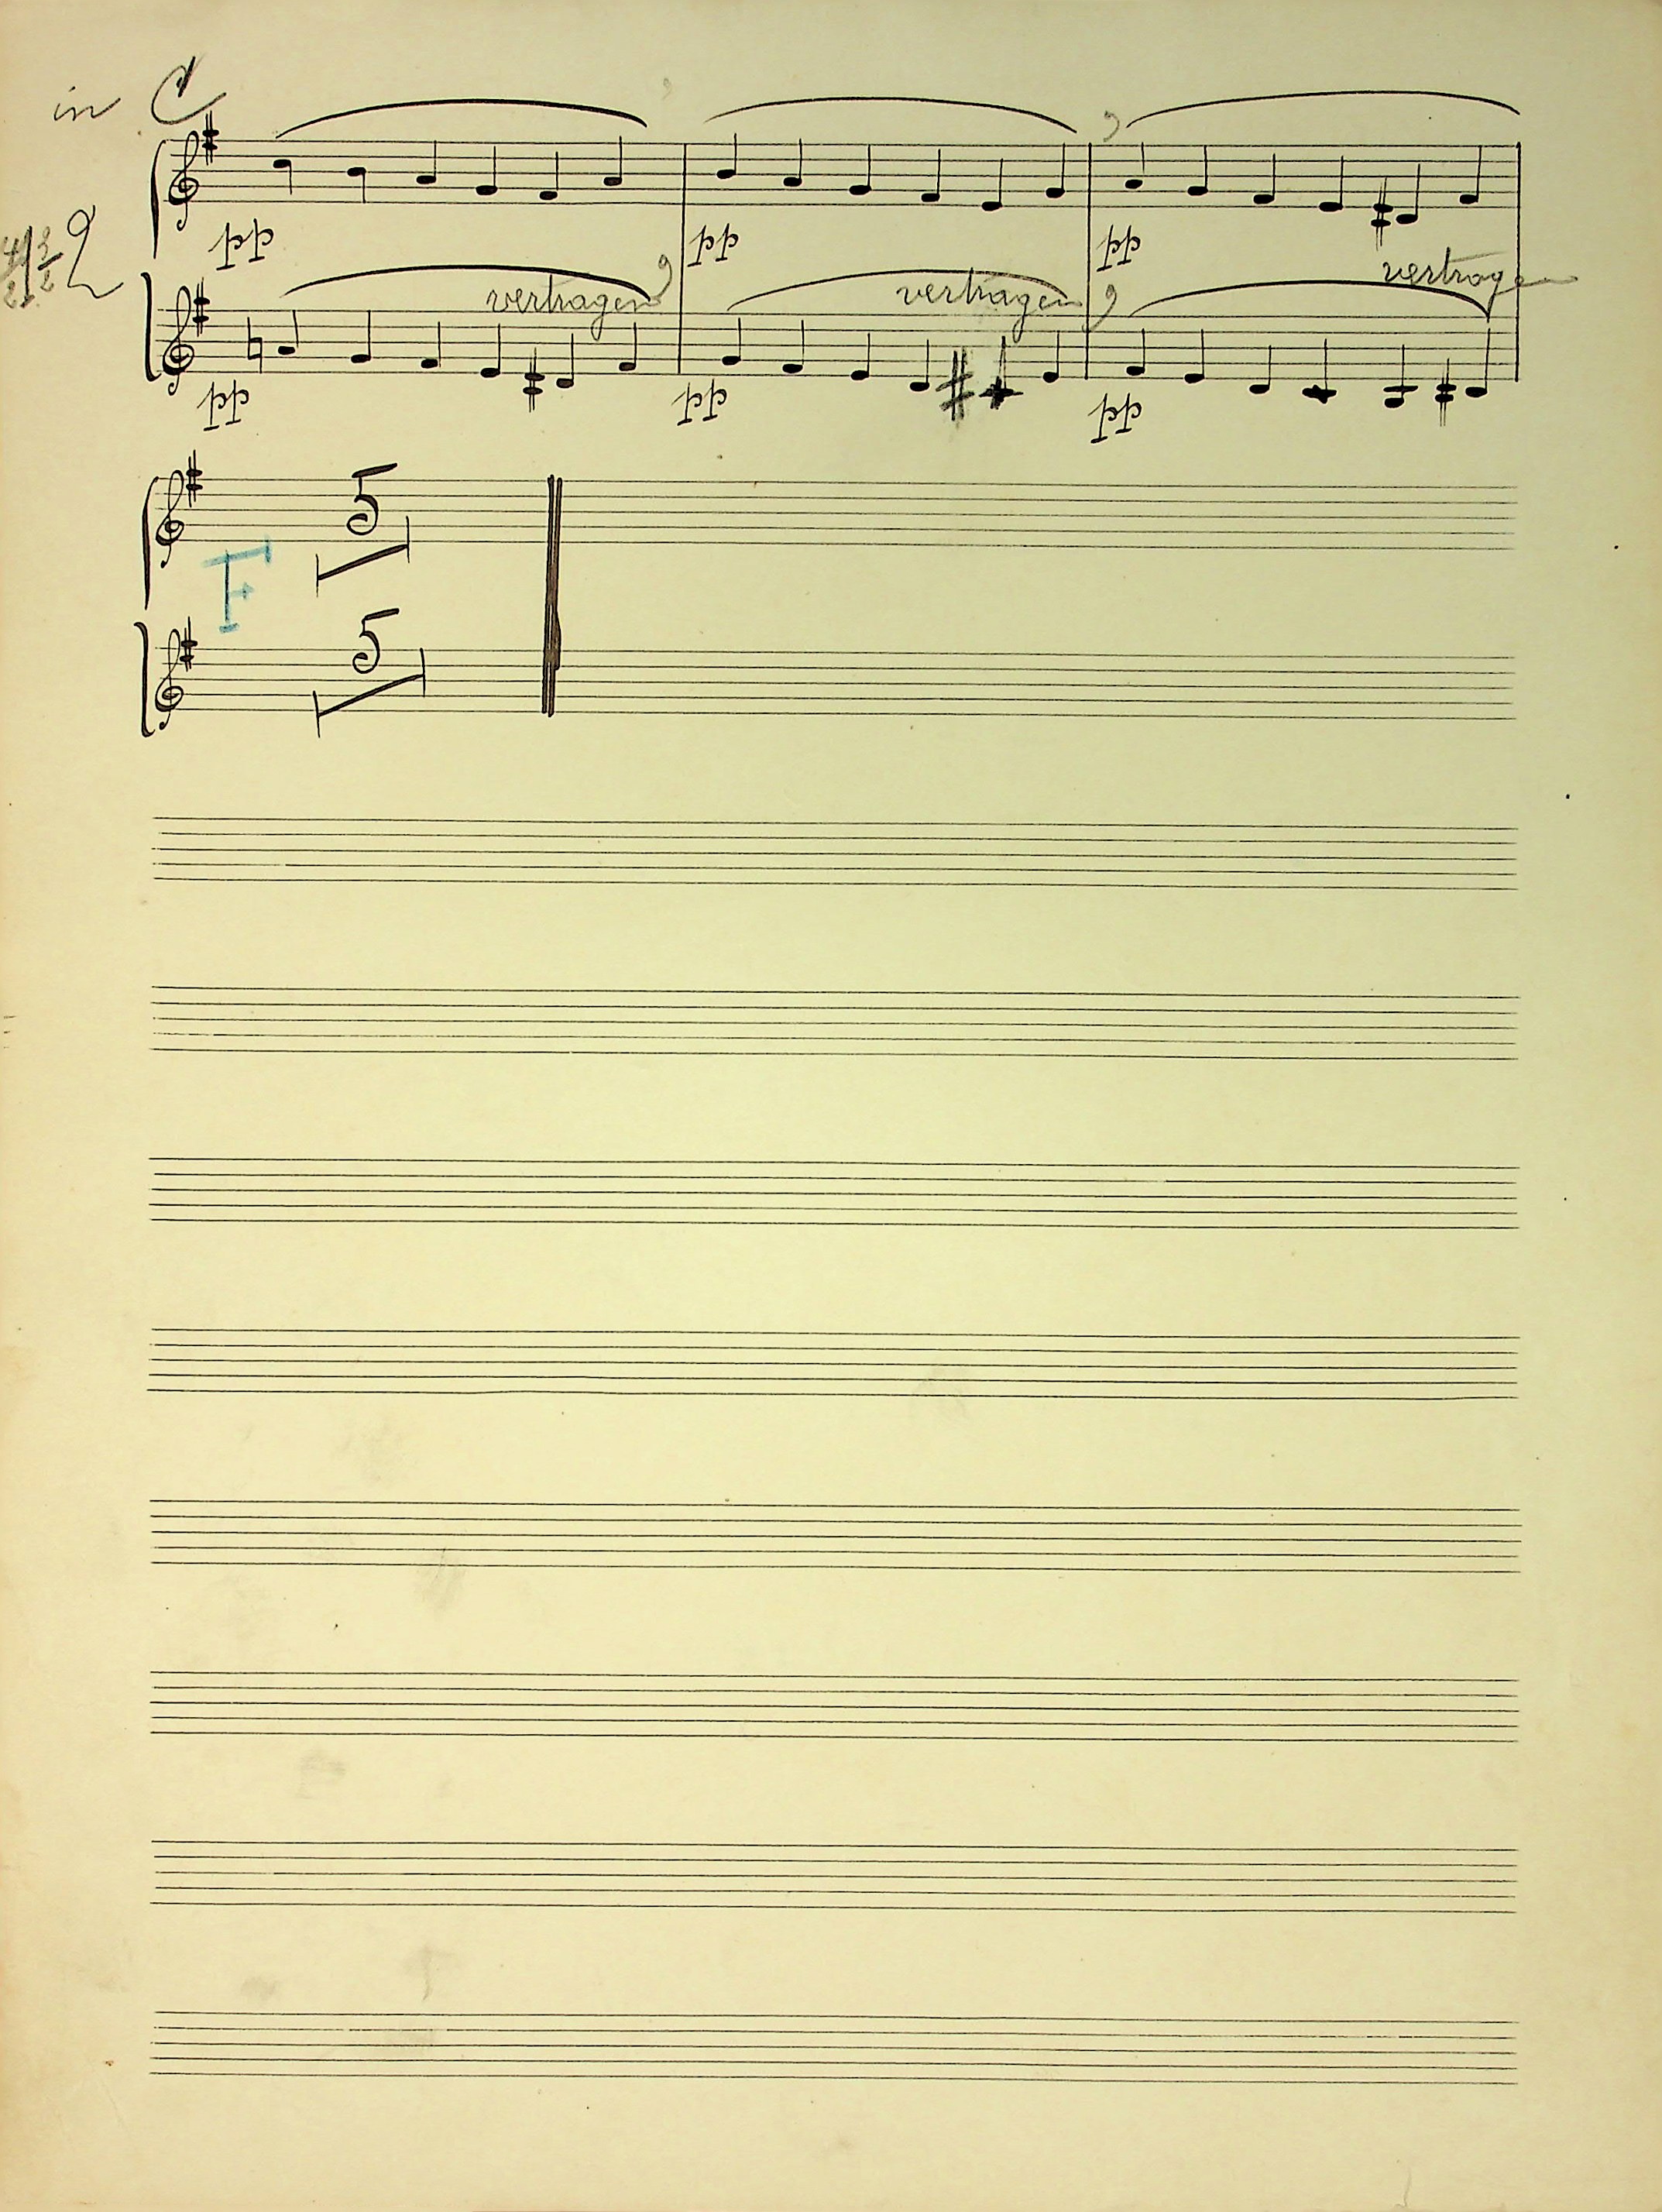 in C
pp pp pp
2 vertragen vertragen vertragen
pp pp pp
5
F
5